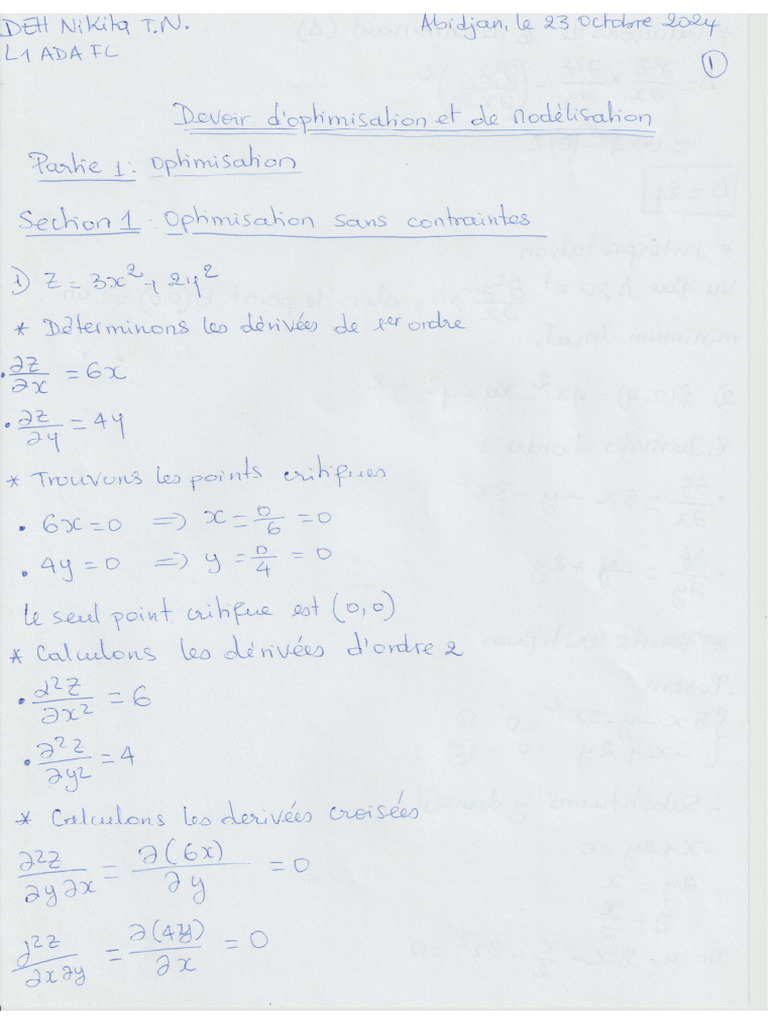 DEH Nikita T.N. Abidjan, le 23 Octobre 2024
L1 ADA FC
1
Devoir d'optimisation et de Modélisation
Partie 1: Optimisation
Section 1: Optimisation sans contraintes
1) Z = 3x² + 2y²
* Déterminons les dérivées de 1er ordre
• ∂Z/∂x = 6x
• ∂Z/∂y = 4y
* Trouvons les points critiques
• 6x = 0 => x = 0/6 = 0
• 4y = 0 => y = 0/4 = 0
le seul point critique est (0,0)
* Calculons les dérivées d'ordre 2
• ∂²Z/∂x² = 6
• ∂²Z/∂y² = 4
* Calculons les derivées croisées
∂²Z/∂y∂x = ∂(6x)/∂y = 0
∂²Z/∂x∂y = ∂(4y)/∂x = 0